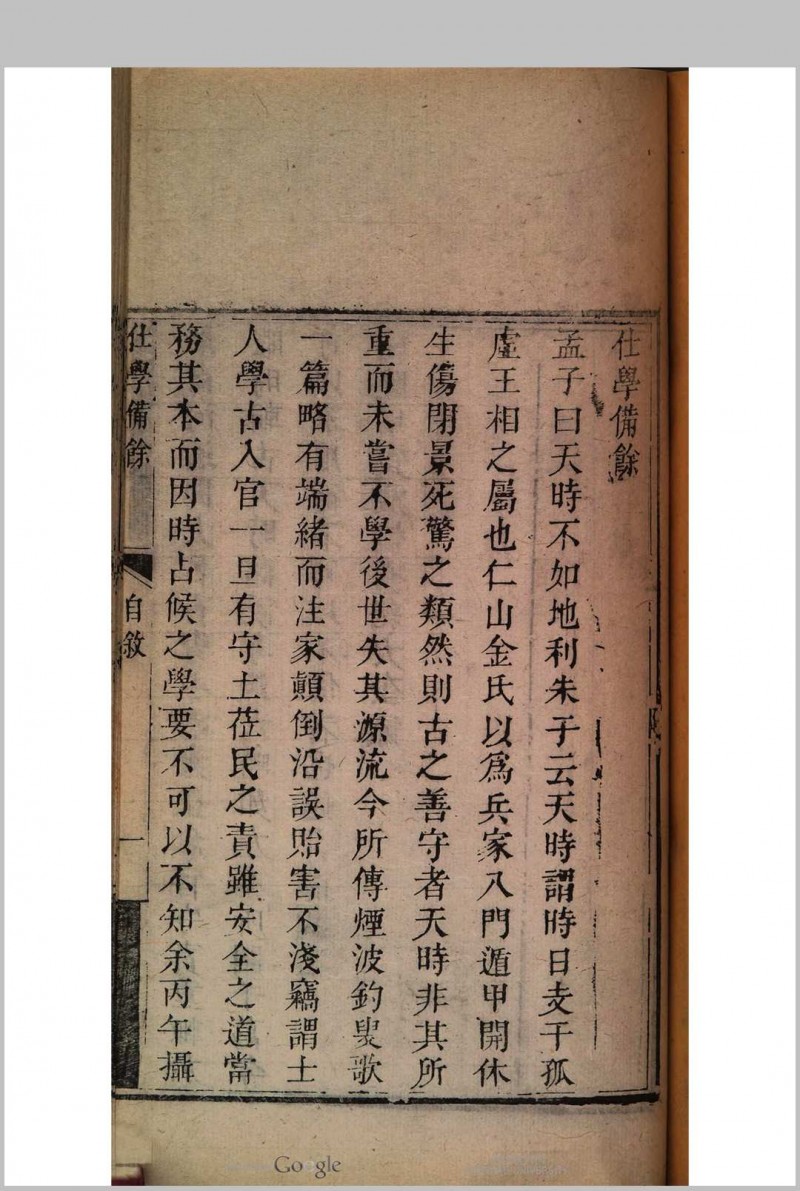 仕學備餘
孟子曰天時不如地利朱子云天時謂時日支干孤
虛王相之屬也仁山金氏以為兵家八門遁甲開休
生傷閉景死驚之類然則古之善守者天時非其所
重而未嘗不學後世失其源流今所傳煙波釣叟歌
一篇略有端緒而注家顛倒沿誤貽害不淺竊謂士
人學古入官一旦有守土莅民之責雖安全之道當
務其本而因時占候之學要不可以不知余丙午攝
仕學備餘
自敘
一
Google